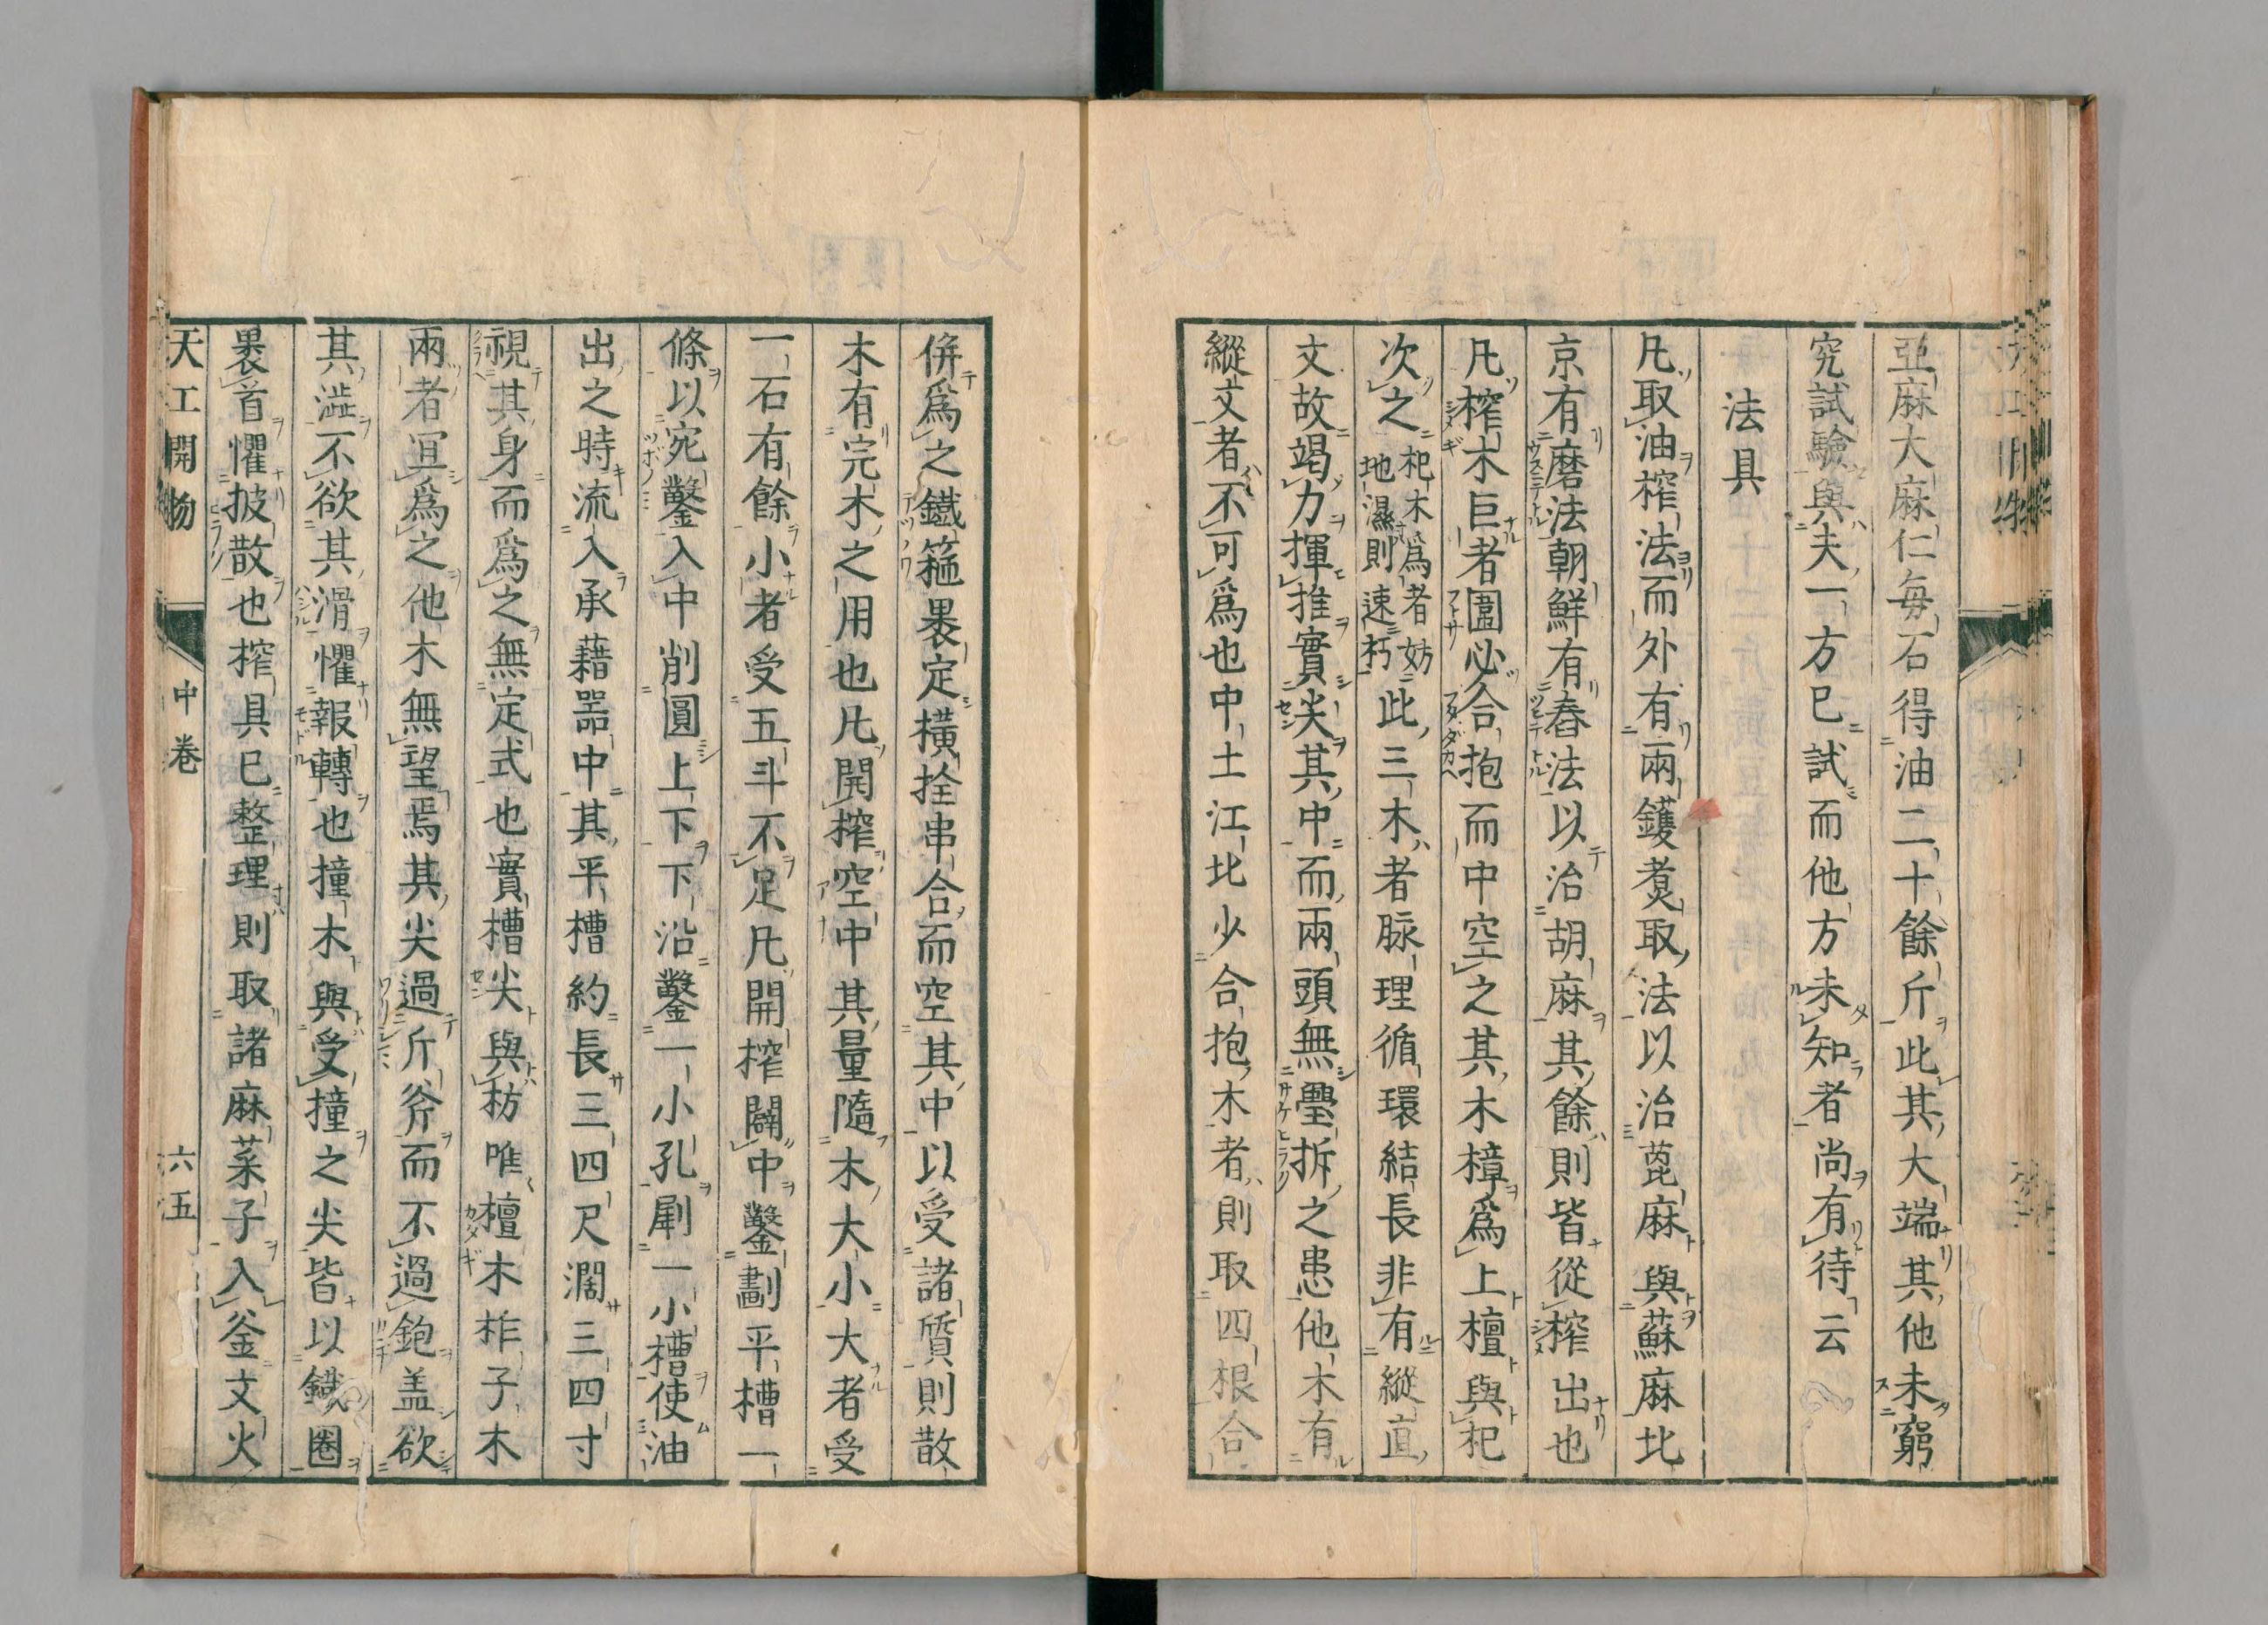 亞麻大麻仁每石得油二十餘斤此其大端其他未窮
究試驗與夫一方已試而他方未知者尚有待云
法具
凡取油榨法而外有兩鑊煑取法以治蓖麻與蘇麻北
京有磨法朝鮮有舂法以治胡麻其餘則皆從榨出也
凡榨木巨者圍必合抱而中空之其木樟爲上檀與杞
次之杞木爲者妨地濕則速朽此三木者脉理循環結長非有縱直
文故竭力揮推實尖其中而兩頭無璺拆之患他木有
縱文者不可爲也中土江北少合抱木者則取四根合
併爲之鐵箍裹定橫拴串合而空其中以受諸質則散
木有完木之用也凡開榨空中其量隨木大小大者受
一石有餘小者受五斗不足凡開榨闢中鑿劃平槽一
條以宛鑿入中削圓上下下沿鑿一小孔剧一小槽使油
出之時流入承藉噐中其平槽約長三四尺濶三四寸
視其身而爲之無定式也實槽尖與枋唯檀木柞子木
兩者冝爲之他木無望焉其尖過斤斧而不過鉋盖欲
其澁不欲其滑懼報轉也撞木與受撞之尖皆以鐵圈
裹首懼披散也榨具已整理則取諸麻菜子入釜文火
天工開物 中卷 六五